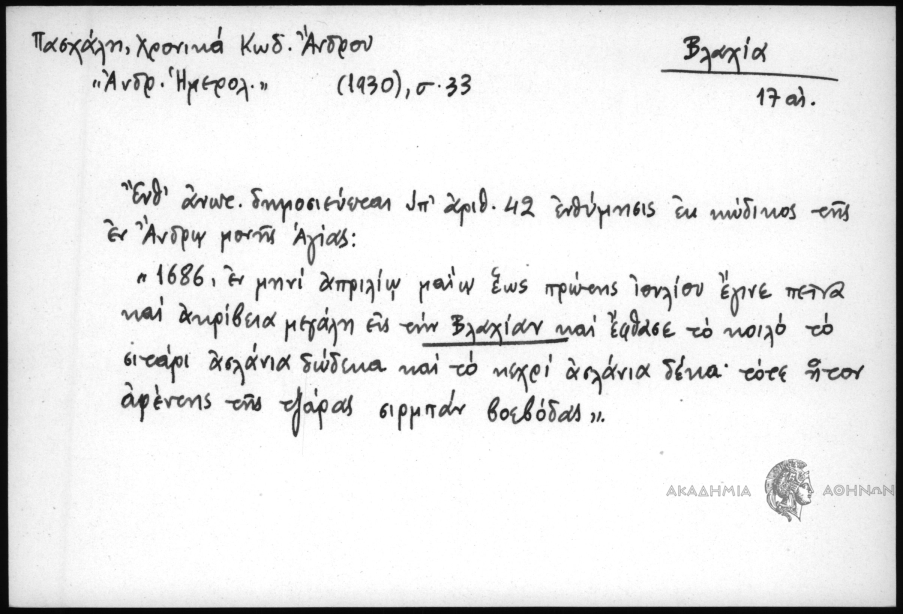 Πασχάλη, Χρονικά Κωδ. Ἄνδρου
Βλαχία
"Ἀνδρ. Ἡμερολ." (1930), σ. 33
17 αἰ.
Ἔνθ' ἀνωτ. δημοσιεύεται ὑπ' ἀριθ. 42 ἐνθύμησις ἐκ κώδικος τῆς
ἐν Ἄνδρῳ μονῆς Ἁγίας:
"1686, ἐν μηνί ἀπριλίῳ μαΐῳ ἕως πρώτης ἰουλίου ἔγινε πεῖνα
καί ἀκρίβεια μεγάλη εἰς τήν Βλαχίαν καί ἔφθασε τό κοιλό τό
σιτάρι ἀσλάνια δώδεκα καί τό κεχρί ἀσλάνια δέκα· τότε ἦτον
ἀφέντης τῆς τζάρας σιρμπάν βοεβόδας".
ΑΚΑΔΗΜΙΑ ΑΘΗΝΩΝ